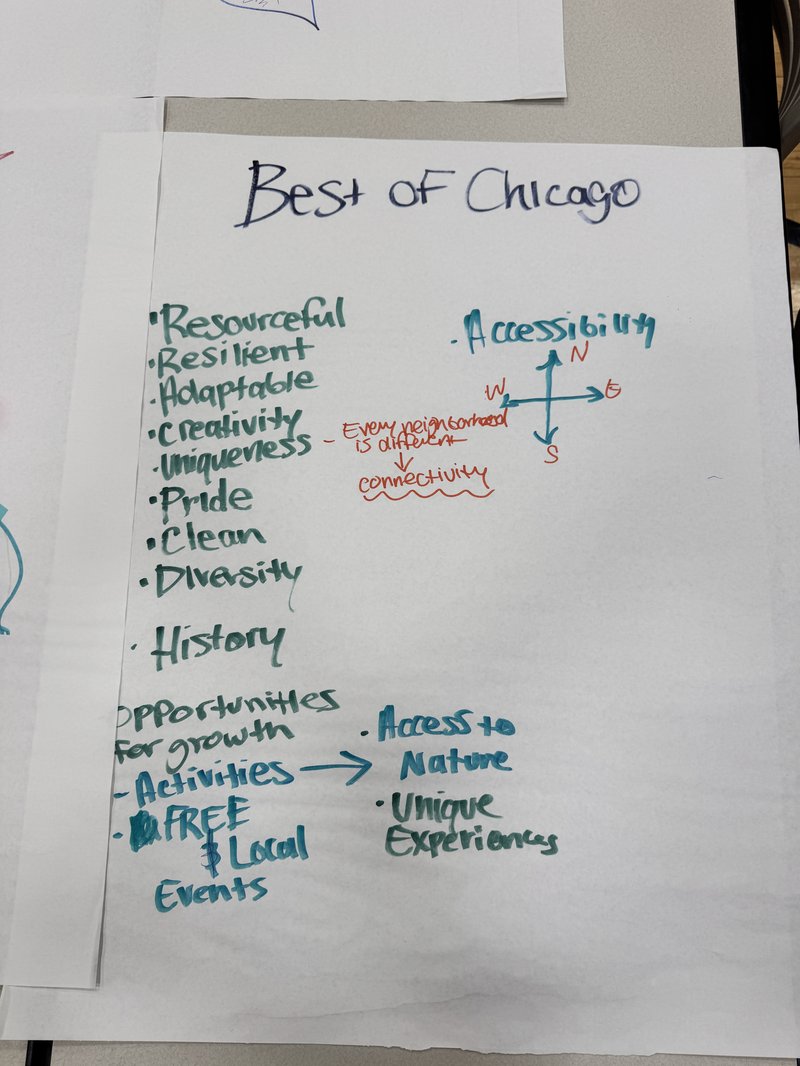 Best of Chicago
• Resourceful
• Resilient
• Adaptable
• Creativity
• Uniqueness – Every neighborhood
is different
↓
connectivity
• Pride
• Clean
• Diversity
• History
Opportunities
for growth
- Activities →
- FREE
$ Local
Events
• Accessibility
N
W E
S
• Access to
Nature
• Unique
Experiences